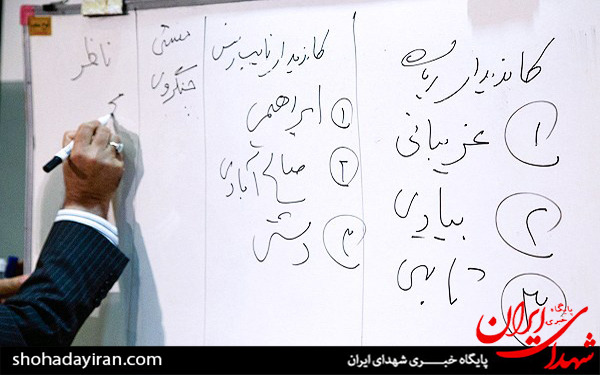 کاندیدای ریاست
۱ غریبانی
۲ بیادی
۳ تابهی
کاندیدای نایب رئیس
۱ ابراهیمی
۲ صالح آبادی
۳ دشتی
منشی
ناظر
پایگاه خبری
شهدای ایران
shohadayiran.com
پایگاه خبری شهدای ایران